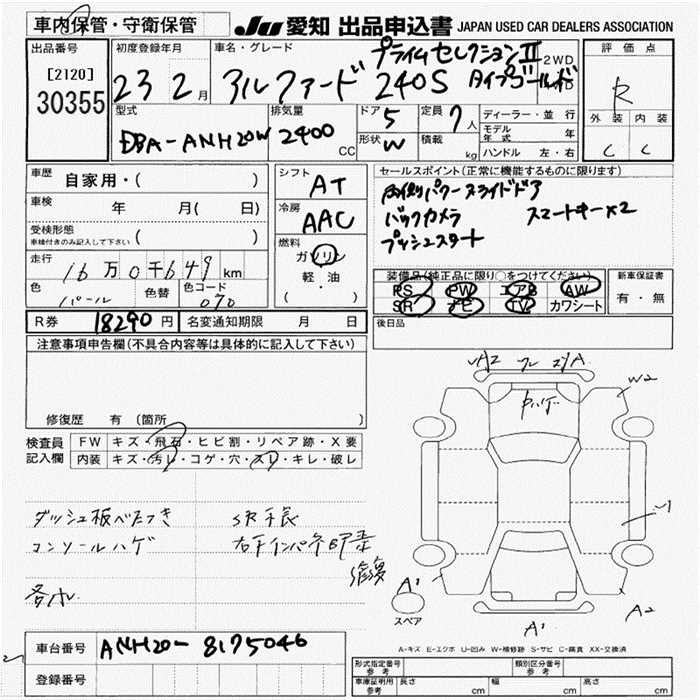 車内保管・守衛保管
JU 愛知 出品申込書 JAPAN USED CAR DEALERS ASSOCIATION
出品番号
[2120]
30355
初度登録年月
23 2月
車名・グレード
アルファード 240S プライムセレクションⅡ タイプゴールド
2WD
評価点
R
外装 内装
C C
型式
DBA-ANH20W
排気量
2400 CC
ドア 5
形状 W
定員 7人
積載 kg
ディーラー・並行
モデル年式 年
ハンドル 左・右
車歴 自家用・( )
車検 年 月( 日)
受検形態
車検付きのみ記入して下さい ( )
走行 16万0千649km
色 パール
色替
色コード 070
シフト AT
冷房 AAC
燃料 ガソリン
軽・油
( ・ )
セールスポイント(正常に機能するものに限ります)
両側パワースライドドア
バックカメラ スマートキー×2
プッシュスタート
装備品(純正品に限り○をつけてください)
PS PW エアB AW
SR ナビ TV カワシート
新車保証書
有・無
後日品
R券 18290円 名変通知期限 月 日
注意事項申告欄(不具合内容等は具体的に記入して下さい)
修復歴 有 (箇所 )
検査員記入欄
FW キズ・飛石・ヒビ割・リペア跡・X要
内装 キズ・汚レ・コゲ・穴・スレ・キレ・破レ
ダッシュ板べたつき
コンソールハゲ
SR手長
右下インパネ
各ホレ
W2
A1
A2
A1
スペア
A-キズ E-エクボ U-凹み W-補修跡 S-サビ C-腐食 XX-交換済
車台番号 ANH20-8175046
登録番号
形式指定番号 参考
類別区分番号 参考
車庫証明用 参考 長さ cm 幅 cm 高さ cm